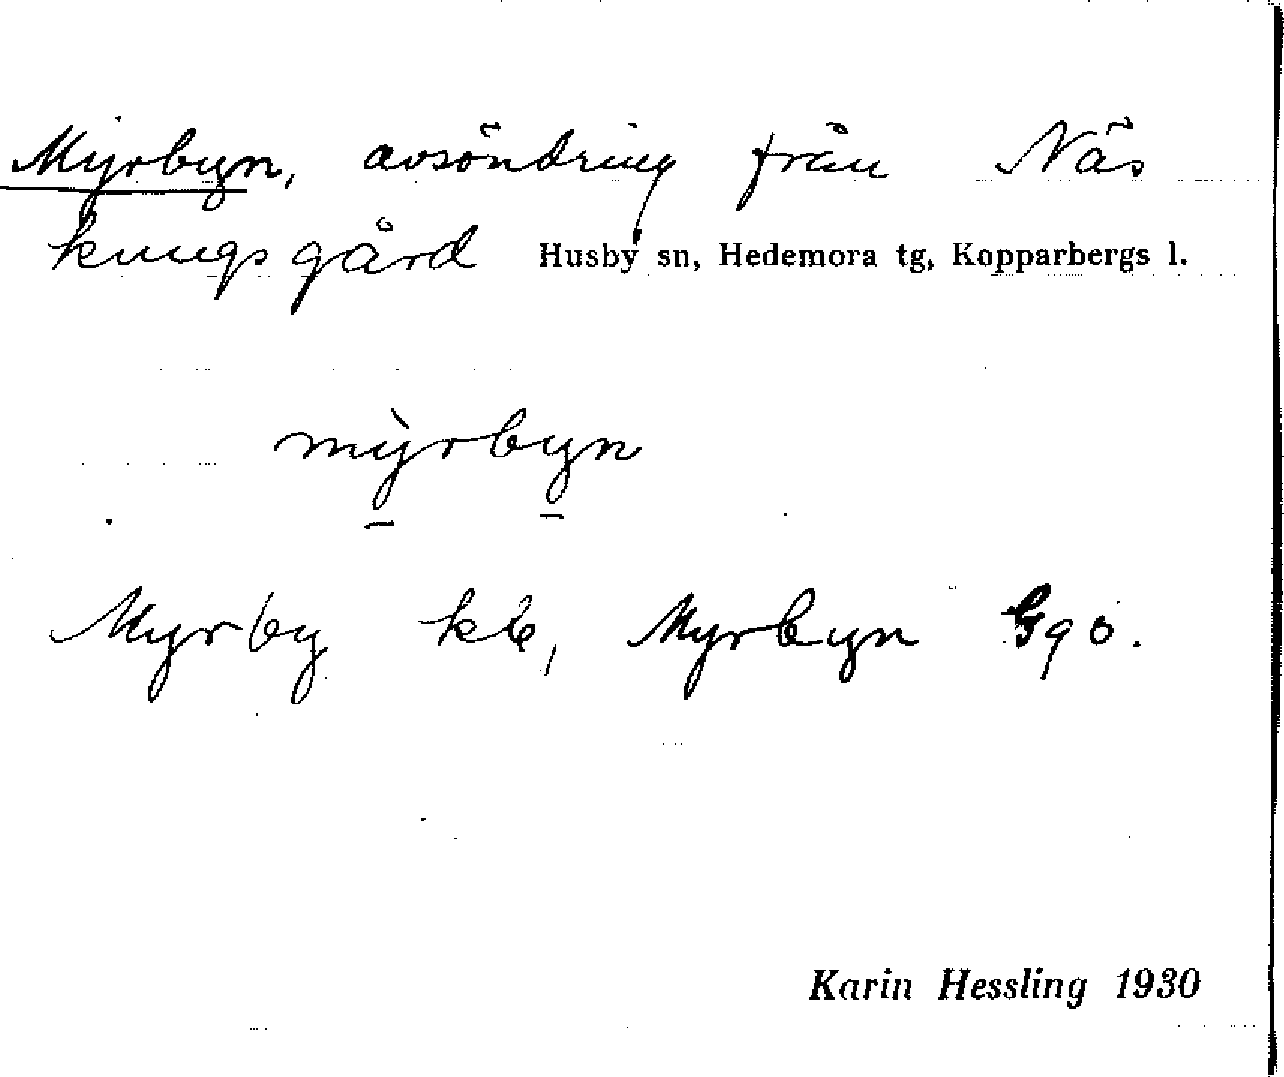 Myrbyn, avsöndring från Näs
kungsgård Husby sn, Hedemora tg, Kopparbergs l.
mỳrbyn
Myrby kb, Myrbyn Gqö.
Karin Hessling 1930